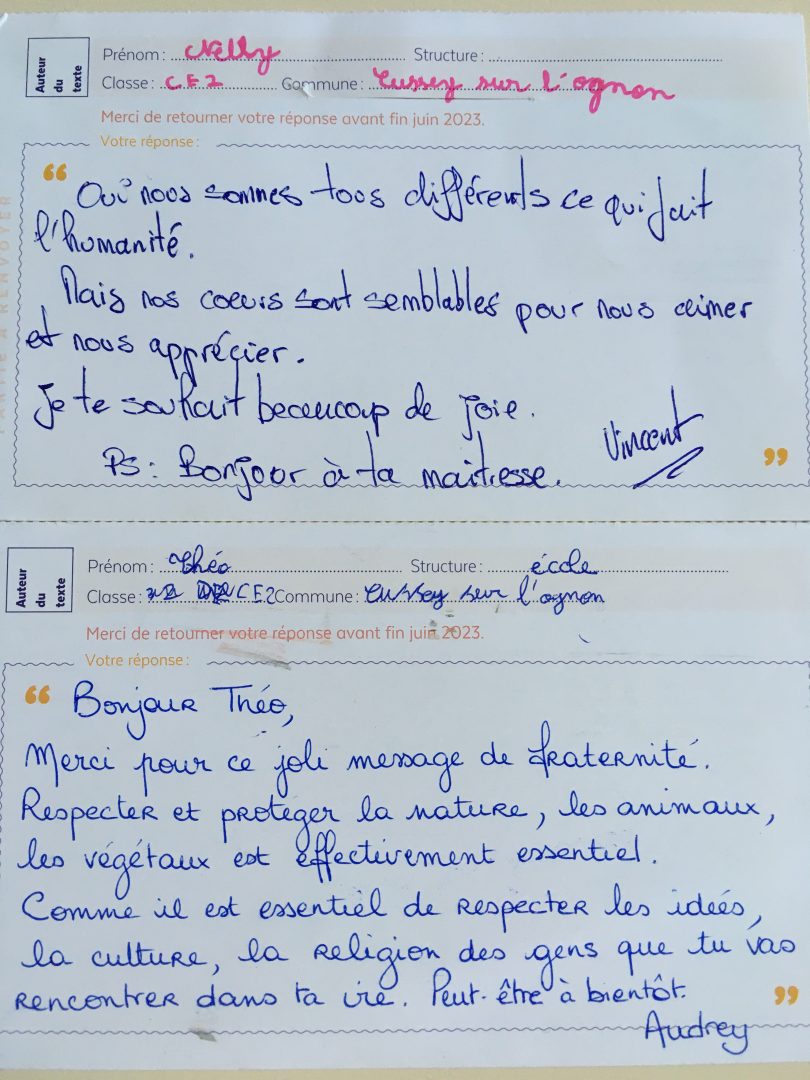 Auteur du texte
Prénom : Nelly Structure :
Classe : CE2 Commune : Cussey sur l'ognon
Merci de retourner votre réponse avant fin juin 2023.
Votre réponse :
“ Oui nous sommes tous différents ce qui fait
l'humanité.
Mais nos coeurs sont semblables pour nous aimer
et nous apprécier.
Je te souhait beaucoup de joie.
Vincent
Ps : Bonjour à ta maitresse. ”
PARTIE À RENVOYER
Auteur du texte
Prénom : Théo Structure : école
Classe : CE2 Commune : Cussey sur l'ognon
Merci de retourner votre réponse avant fin juin 2023.
Votre réponse :
“ Bonjour Théo,
Merci pour ce joli message de fraternité.
Respecter et protéger la nature, les animaux,
les végétaux est effectivement essentiel.
Comme il est essentiel de respecter les idées,
la culture, la religion des gens que tu vas
rencontrer dans ta vie. Peut-être à bientôt. ”
Audrey